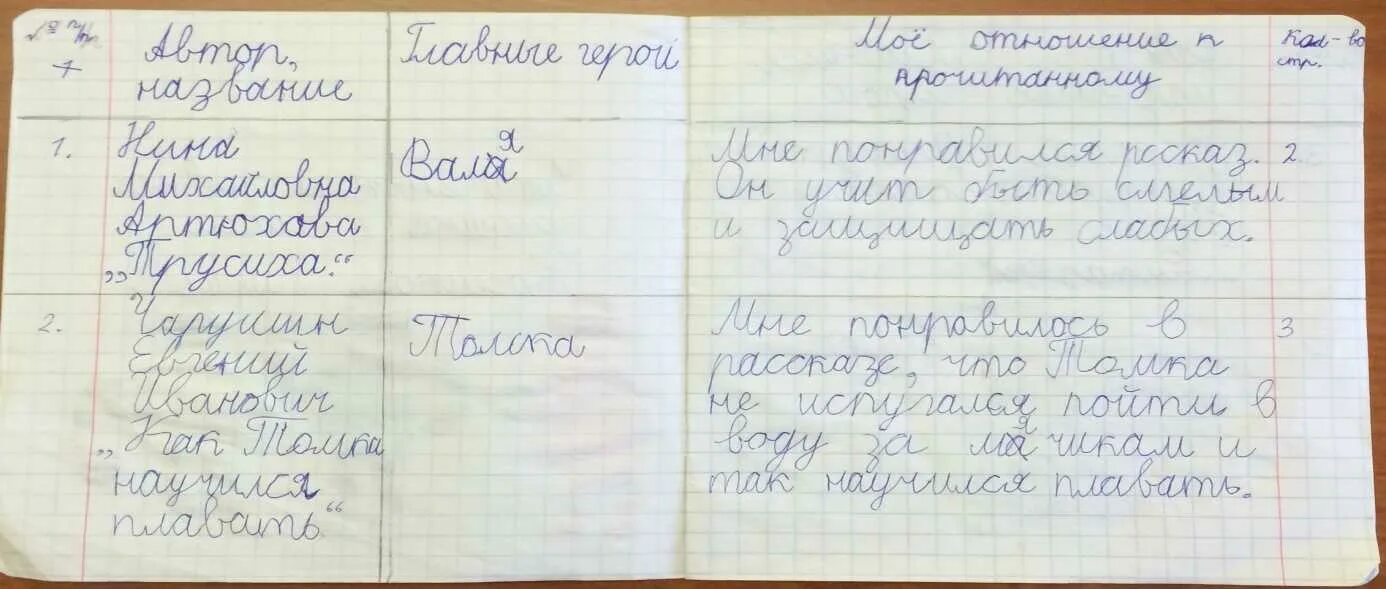 № п/п
Автор,
название
Главные герой
Моё отношение к
прочитанному
Кол-во
стр.
1.
Нина
Михайловна
Артюхова
„Трусиха.“
Валя
Мне понравился рссказ.
Он учит быть смелым
и защищать слабых.
2
2.
Чарушин
Евгений
Иванович
„Как Томка
научился
плавать“
Томка
Мне понравилось в
рассказе, что Томка
не испугался пойти в
воду за мячикам и
так научился плавать.
3